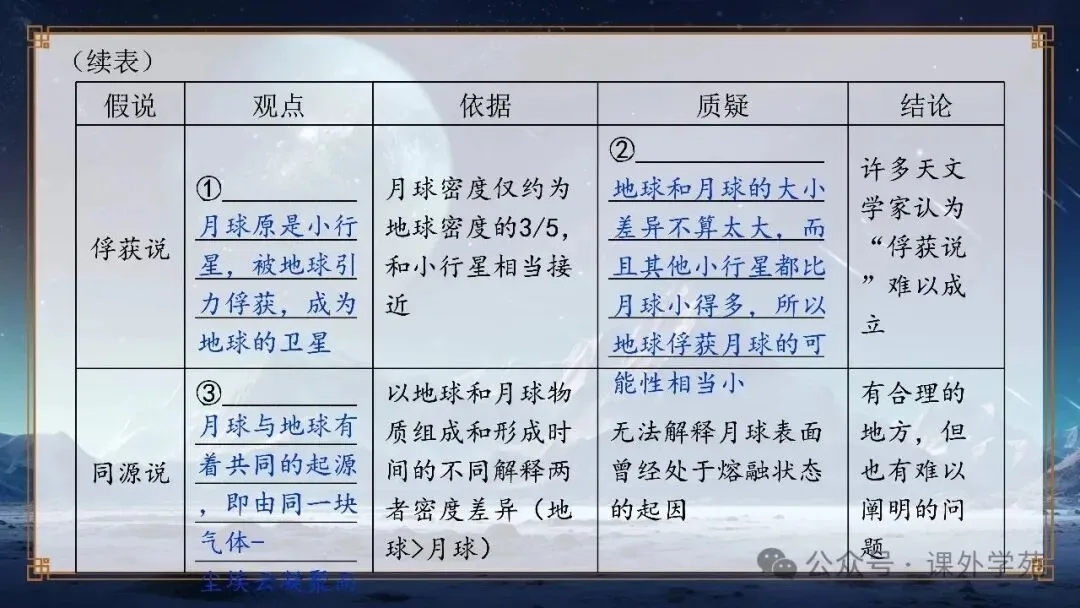 （续表）
假说 观点 依据 质疑 结论
俘获说
①
月球原是小行
星，被地球引
力俘获，成为
地球的卫星
月球密度仅约为
地球密度的3/5，
和小行星相当接
近
②
地球和月球的大小
差异不算太大，而
且其他小行星都比
月球小得多，所以
地球俘获月球的可
能性相当小
许多天文
学家认为
“俘获说
”难以成
立
同源说
③
月球与地球有
着共同的起源
，即由同一块
气体-
尘埃云凝聚而
以地球和月球物
质组成和形成时
间的不同解释两
者密度差异（地
球>月球）
无法解释月球表面
曾经处于熔融状态
的起因
有合理的
地方，但
也有难以
阐明的问
题
公众号·课外学苑